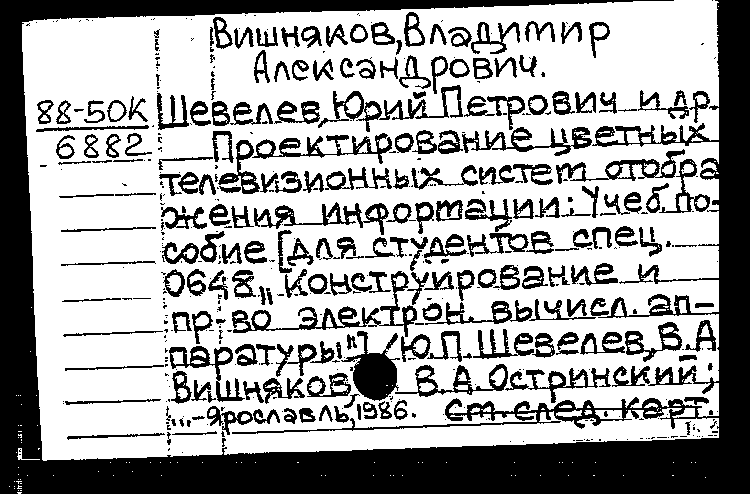 Вишняков, Владимир
Александрович.
88-50К Шевелев, Юрий Петрович и др.
6882 Проектирование цветных
телевизионных систем отобра
жения информации: Учеб. по-
собие [для студентов спец.
0648 „Конструирование и
пр-во электрон. вычисл. ап-
паратуры"] / Ю.П. Шевелев, В.А.
Вишняков, В.А. Остринский;
...-Ярославль, 1986. ст. след. карт.